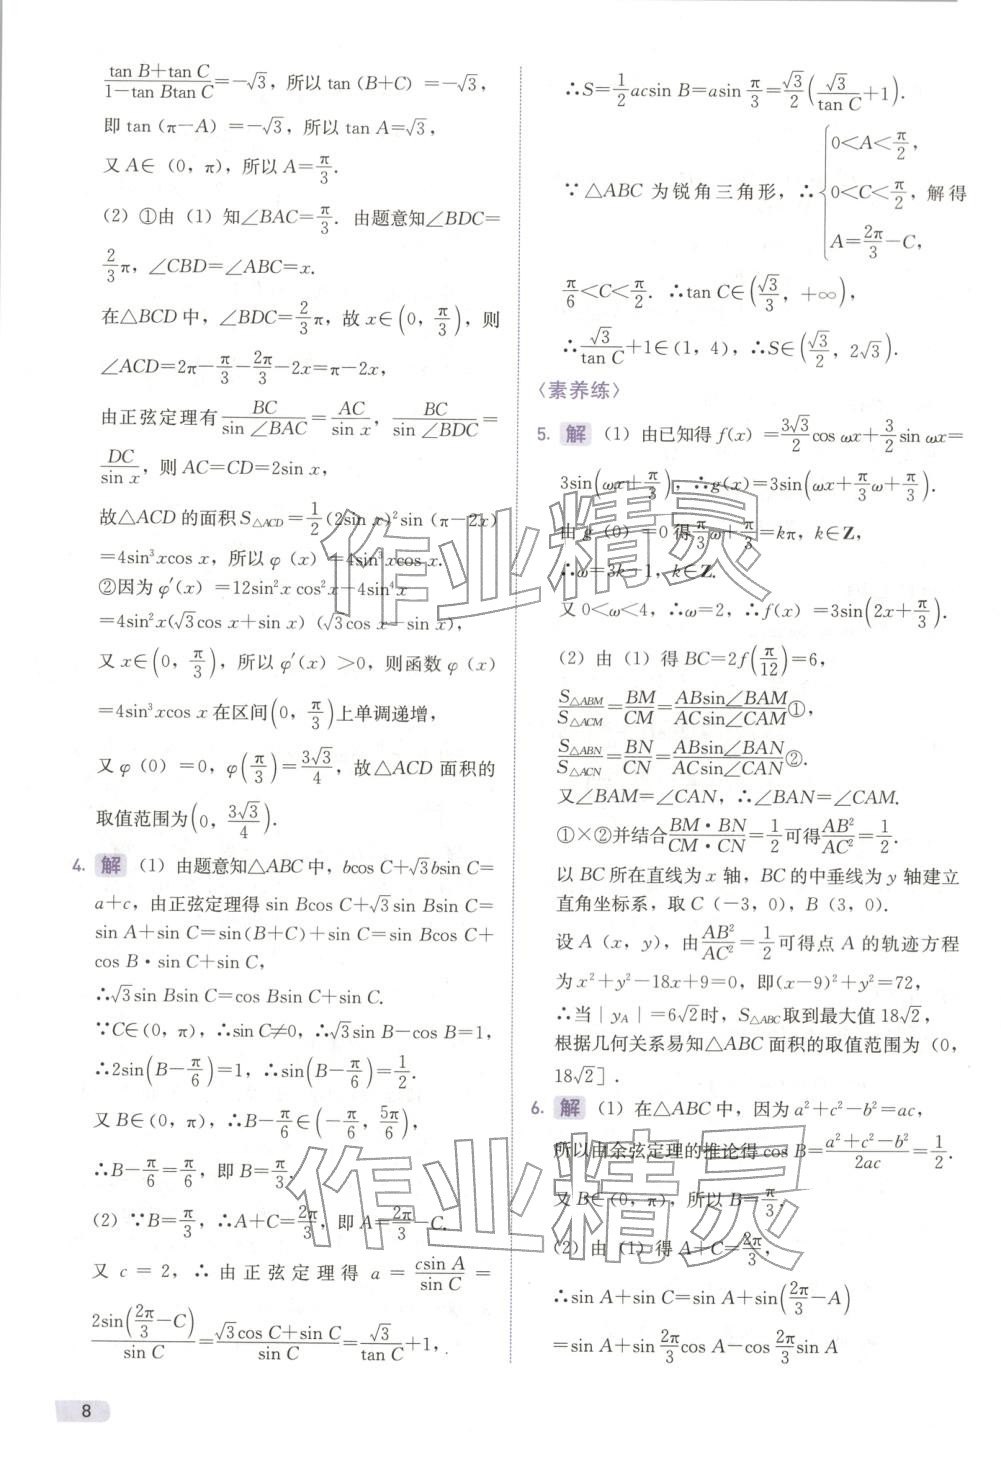 (tan B+tan C)/(1−tan Btan C)=−√3，所以 tan（B+C）=−√3，
即 tan（π−A）=−√3，所以 tan A=√3，
又 A∈（0，π），所以 A=π/3.
（2）①由（1）知∠BAC=π/3．由题意知∠BDC=
2/3π，∠CBD=∠ABC=x.
在△BCD 中，∠BDC=2/3π，故 x∈(0，π/3)，则
∠ACD=2π−π/3−2π/3−2x=π−2x，
由正弦定理有BC/sin∠BAC=AC/sin x，BC/sin∠BDC=
DC/sin x，则 AC=CD=2sin x，
故△ACD 的面积 S△ACD=1/2（2sin x）²sin（π−2x）
=4sin³xcos x，所以 φ（x）=4sin³xcos x.
②因为 φ′（x）=12sin²x cos²x−4sin⁴x
=4sin²x(√3cos x+sin x)（√3cos x−sin x)，
又 x∈(0，π/3)，所以 φ′(x）>0，则函数 φ（x）
=4sin³xcos x 在区间(0，π/3)上单调递增，
又 φ（0）=0，φ(π/3)=3√3/4，故△ACD 面积的
取值范围为(0，3√3/4).
4. 解（1）由题意知△ABC 中，bcos C+√3bsin C=
a+c，由正弦定理得 sin Bcos C+√3sin Bsin C=
sin A+sin C=sin(B+C)+sin C=sin Bcos C+
cos B·sin C+sin C，
∴√3sin Bsin C=cos Bsin C+sin C.
∵C∈(0，π)，∴sin C≠0，∴√3sin B−cos B=1，
∴2sin(B−π/6)=1，∴sin(B−π/6)=1/2.
又 B∈(0，π)，∴B−π/6∈(−π/6，5π/6)，
∴B−π/6=π/6，即 B=π/3.
（2）∵B=π/3，∴A+C=2π/3，即 A=2π/3−C.
又 c=2，∴由正弦定理得 a=csin A/sin C=
2sin(2π/3−C)/sin C=(√3cos C+sin C)/sin C=√3/tan C+1，
8
∴S=1/2acsin B=asin π/3=√3/2(√3/tan C+1).
∵△ABC 为锐角三角形，∴{0<A<π/2，0<C<π/2，A=2π/3−C，解得
π/6<C<π/2．∴tan C∈(√3/3，+∞)，
∴√3/tan C+1∈(1，4)，∴S∈(√3/2，2√3).
〈素养练〉
5. 解（1）由已知得 f(x)=3√3/2cos ωx+3/2sin ωx=
3sin(ωx+π/3)，∴g(x)=3sin(ωx+π/3ω+π/3).
由 g（0）=0 得π/3ω+π/3=kπ，k∈Z，
∴ω=3k−1，k∈Z.
又 0<ω<4，∴ω=2，∴f（x）=3sin(2x+π/3).
（2）由（1）得 BC=2f(π/12)=6，
S△ABM/S△ACM=BM/CM=ABsin∠BAM/ACsin∠CAM①，
S△ABN/S△ACN=BN/CN=ABsin∠BAN/ACsin∠CAN②.
又∠BAM=∠CAN，∴∠BAN=∠CAM.
①×②并结合BM·BN/CM·CN=1/2可得AB²/AC²=1/2.
以 BC 所在直线为 x 轴，BC 的中垂线为 y 轴建立
直角坐标系，取 C（−3，0），B（3，0）.
设 A（x，y），由AB²/AC²=1/2可得点 A 的轨迹方程
为 x²+y²−18x+9=0，即(x−9)²+y²=72，
∴当|yA|=6√2时，S△ABC取到最大值 18√2，
根据几何关系易知△ABC 面积的取值范围为（0，
18√2］.
6. 解（1）在△ABC 中，因为 a²+c²−b²=ac，
所以由余弦定理的推论得 cos B=(a²+c²−b²)/2ac=1/2.
又 B∈(0，π)，所以 B=π/3.
（2）由（1）得 A+C=2π/3，
∴sin A+sin C=sin A+sin(2π/3−A)
=sin A+sin 2π/3cos A−cos 2π/3sin A
作业精灵
作业精灵